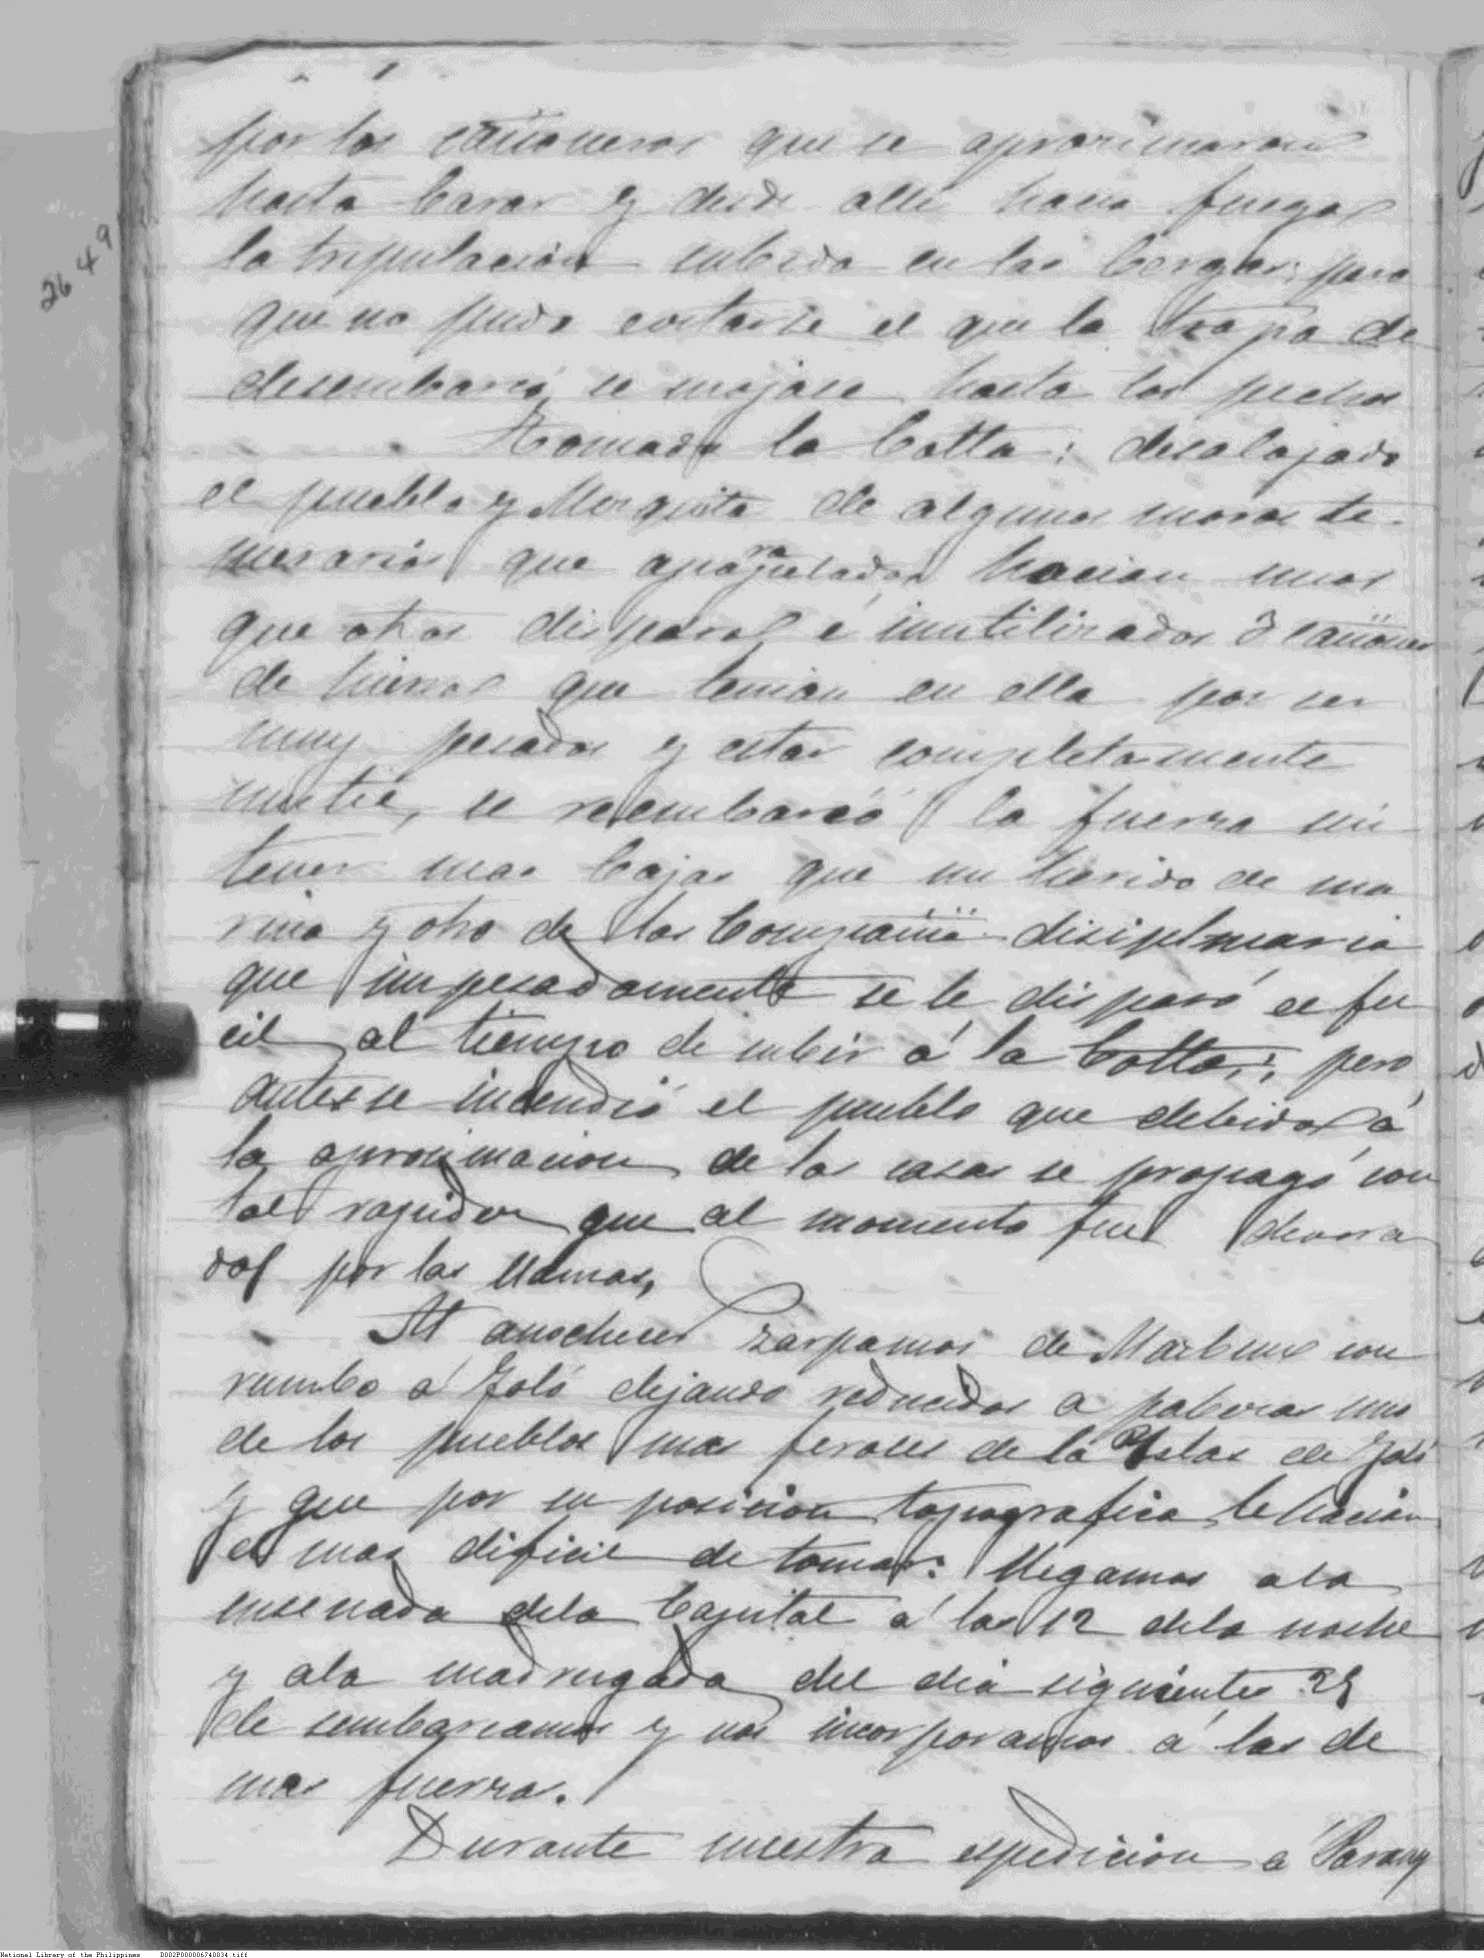 por los cañoneros que se aproximaron
hasta barar y desde alli hacia fuego
la tripulacion subida en las bergas; pero
que no pudo evitarse el que la tropa de
desembarco se mojase hasta los pechos
Tomada la Cotta: desalojado
el pueblo y Mezquita de algunos moros te-
merarios que aparapetados hacian unos
que otros disparos é inutilizados cañones
de hierro que tenian en ella por ser
muy pesados y estar completamente
inutil, se reembarcó la fuerza sin
tener mas bajas que un herido de ma
rina y otro de las Compañia disiplinaria
que impesadamente se le disparó el fu
cil al tiempo de subir á la Cotta; pero
antes se incendió el pueblo que debido á
la aprocimacion de las casas se propagó con
tal rapidez que al momento fue devora
do por las llamas,
Al anochecer zarpamos de Maibun con
rumbo á Joló dejando reducidos a pabesas uno
de los pueblos mas feroces de la Yslas de Joló
y que por su posicion topografica le hacian
el mas dificil de tomar: llegamos ala
ensenada dela Capital á las 12 dela noche
y ala madrugada del dia siguiente 25
desembarcamos y nos incorporamos á las de
mas fuerzas.
Durante nuestra espedicion á Parang
26 49
National Library of the Philippines D002P000006740034.tiff